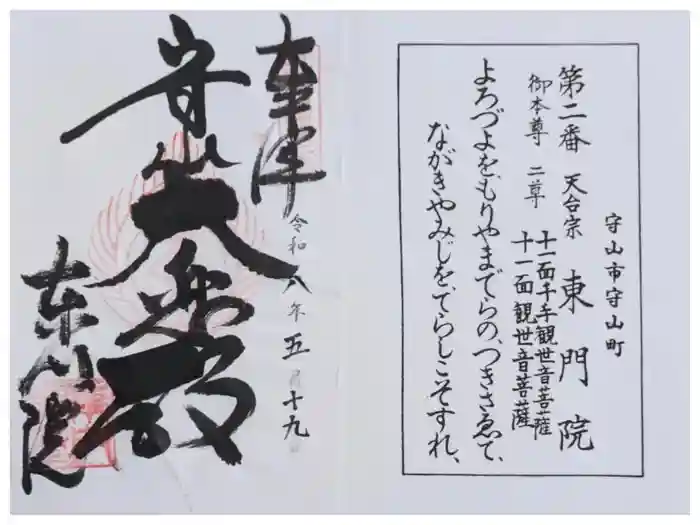 守山市守山町
第二番 天台宗 東門院
御本尊 二尊 十一面千手観世音菩薩
十一面観世音菩薩
よろづよを、もりやまでらの、つきさゑて、
ながきやみじを、てらしこそすれ、
奉拝
令和八年五月十九日
守山大悲殿
東門院